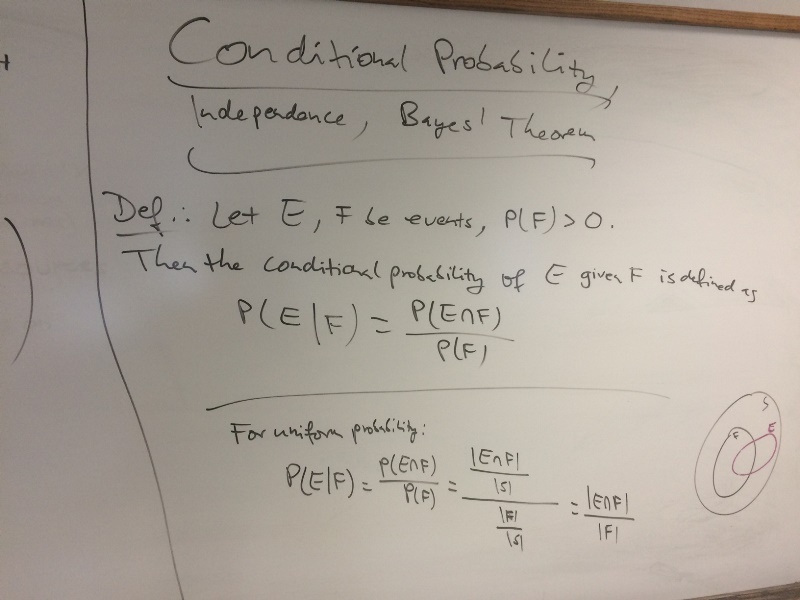 Conditional Probability,
Independence, Bayes' Theorem
Def.: Let E, F be events, P(F) > 0.
Then the conditional probability of E given F is defined as
P(E|F) = P(E∩F) / P(F)
For uniform probability:
P(E|F) = P(E∩F) / P(F) = (|E∩F| / |S|) / (|F| / |S|) = |E∩F| / |F|
S
F
E